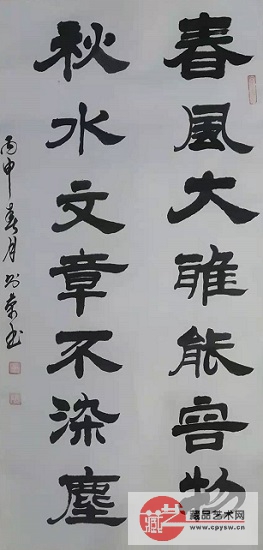 春風大雅能容物
秋水文章不染塵
丙申春月
藏艺
藏品艺术网
www.cpysw.cn